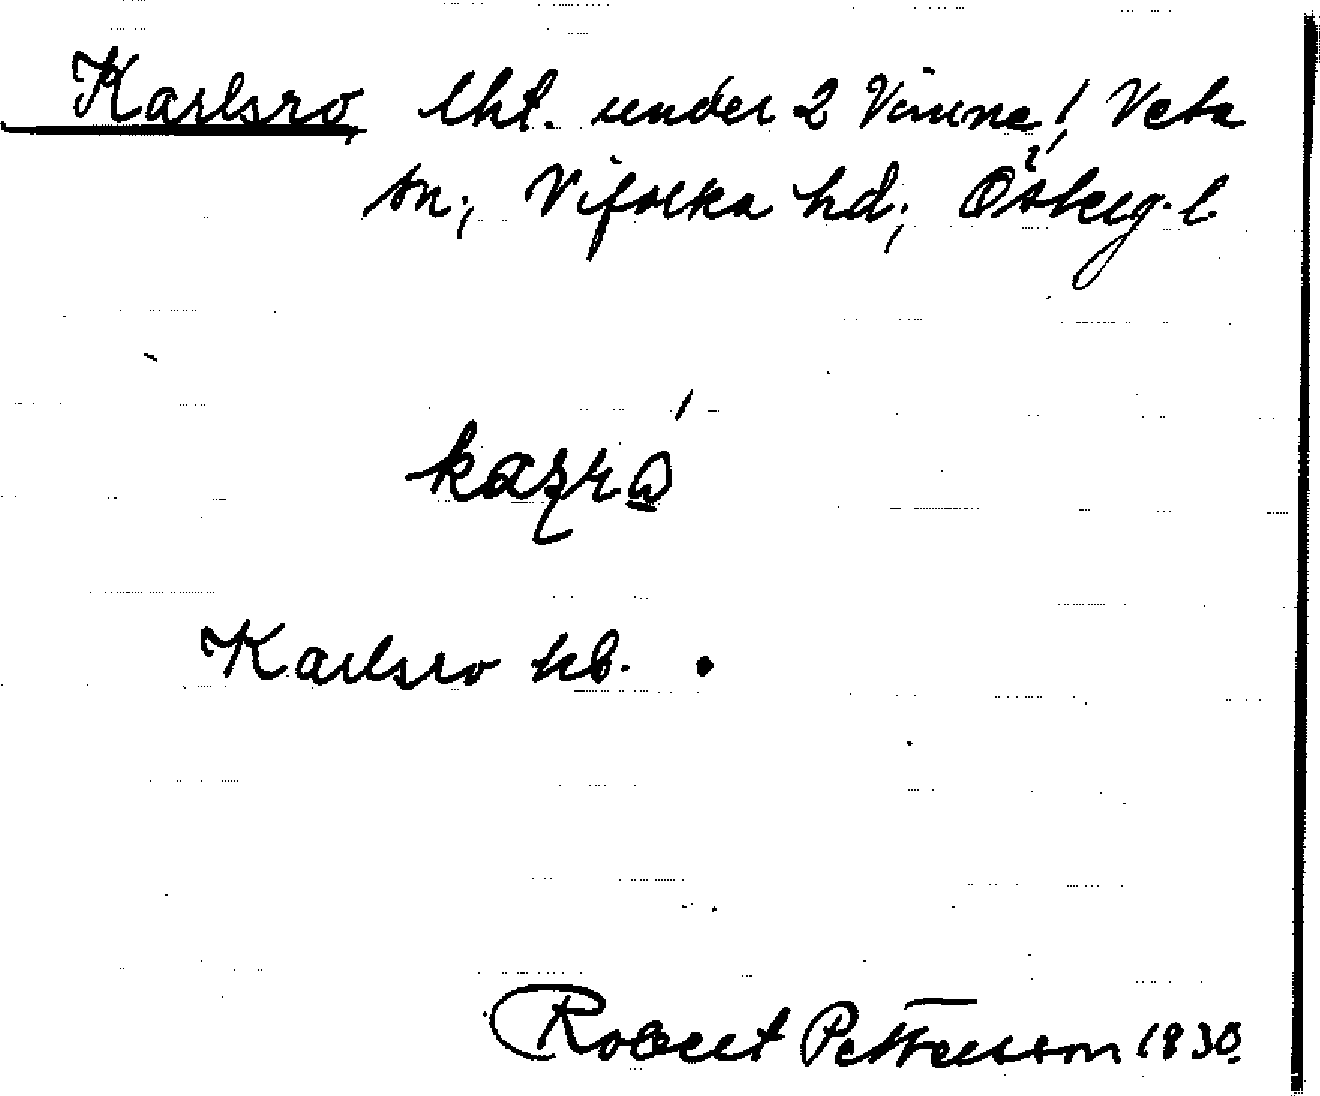 Karlsro, lht. under 2 Vimne, Veta
sn., Vifolka hd., Österg. l.
kazrώ̲
Karlsro kb.
Robert Pettersson 1930.